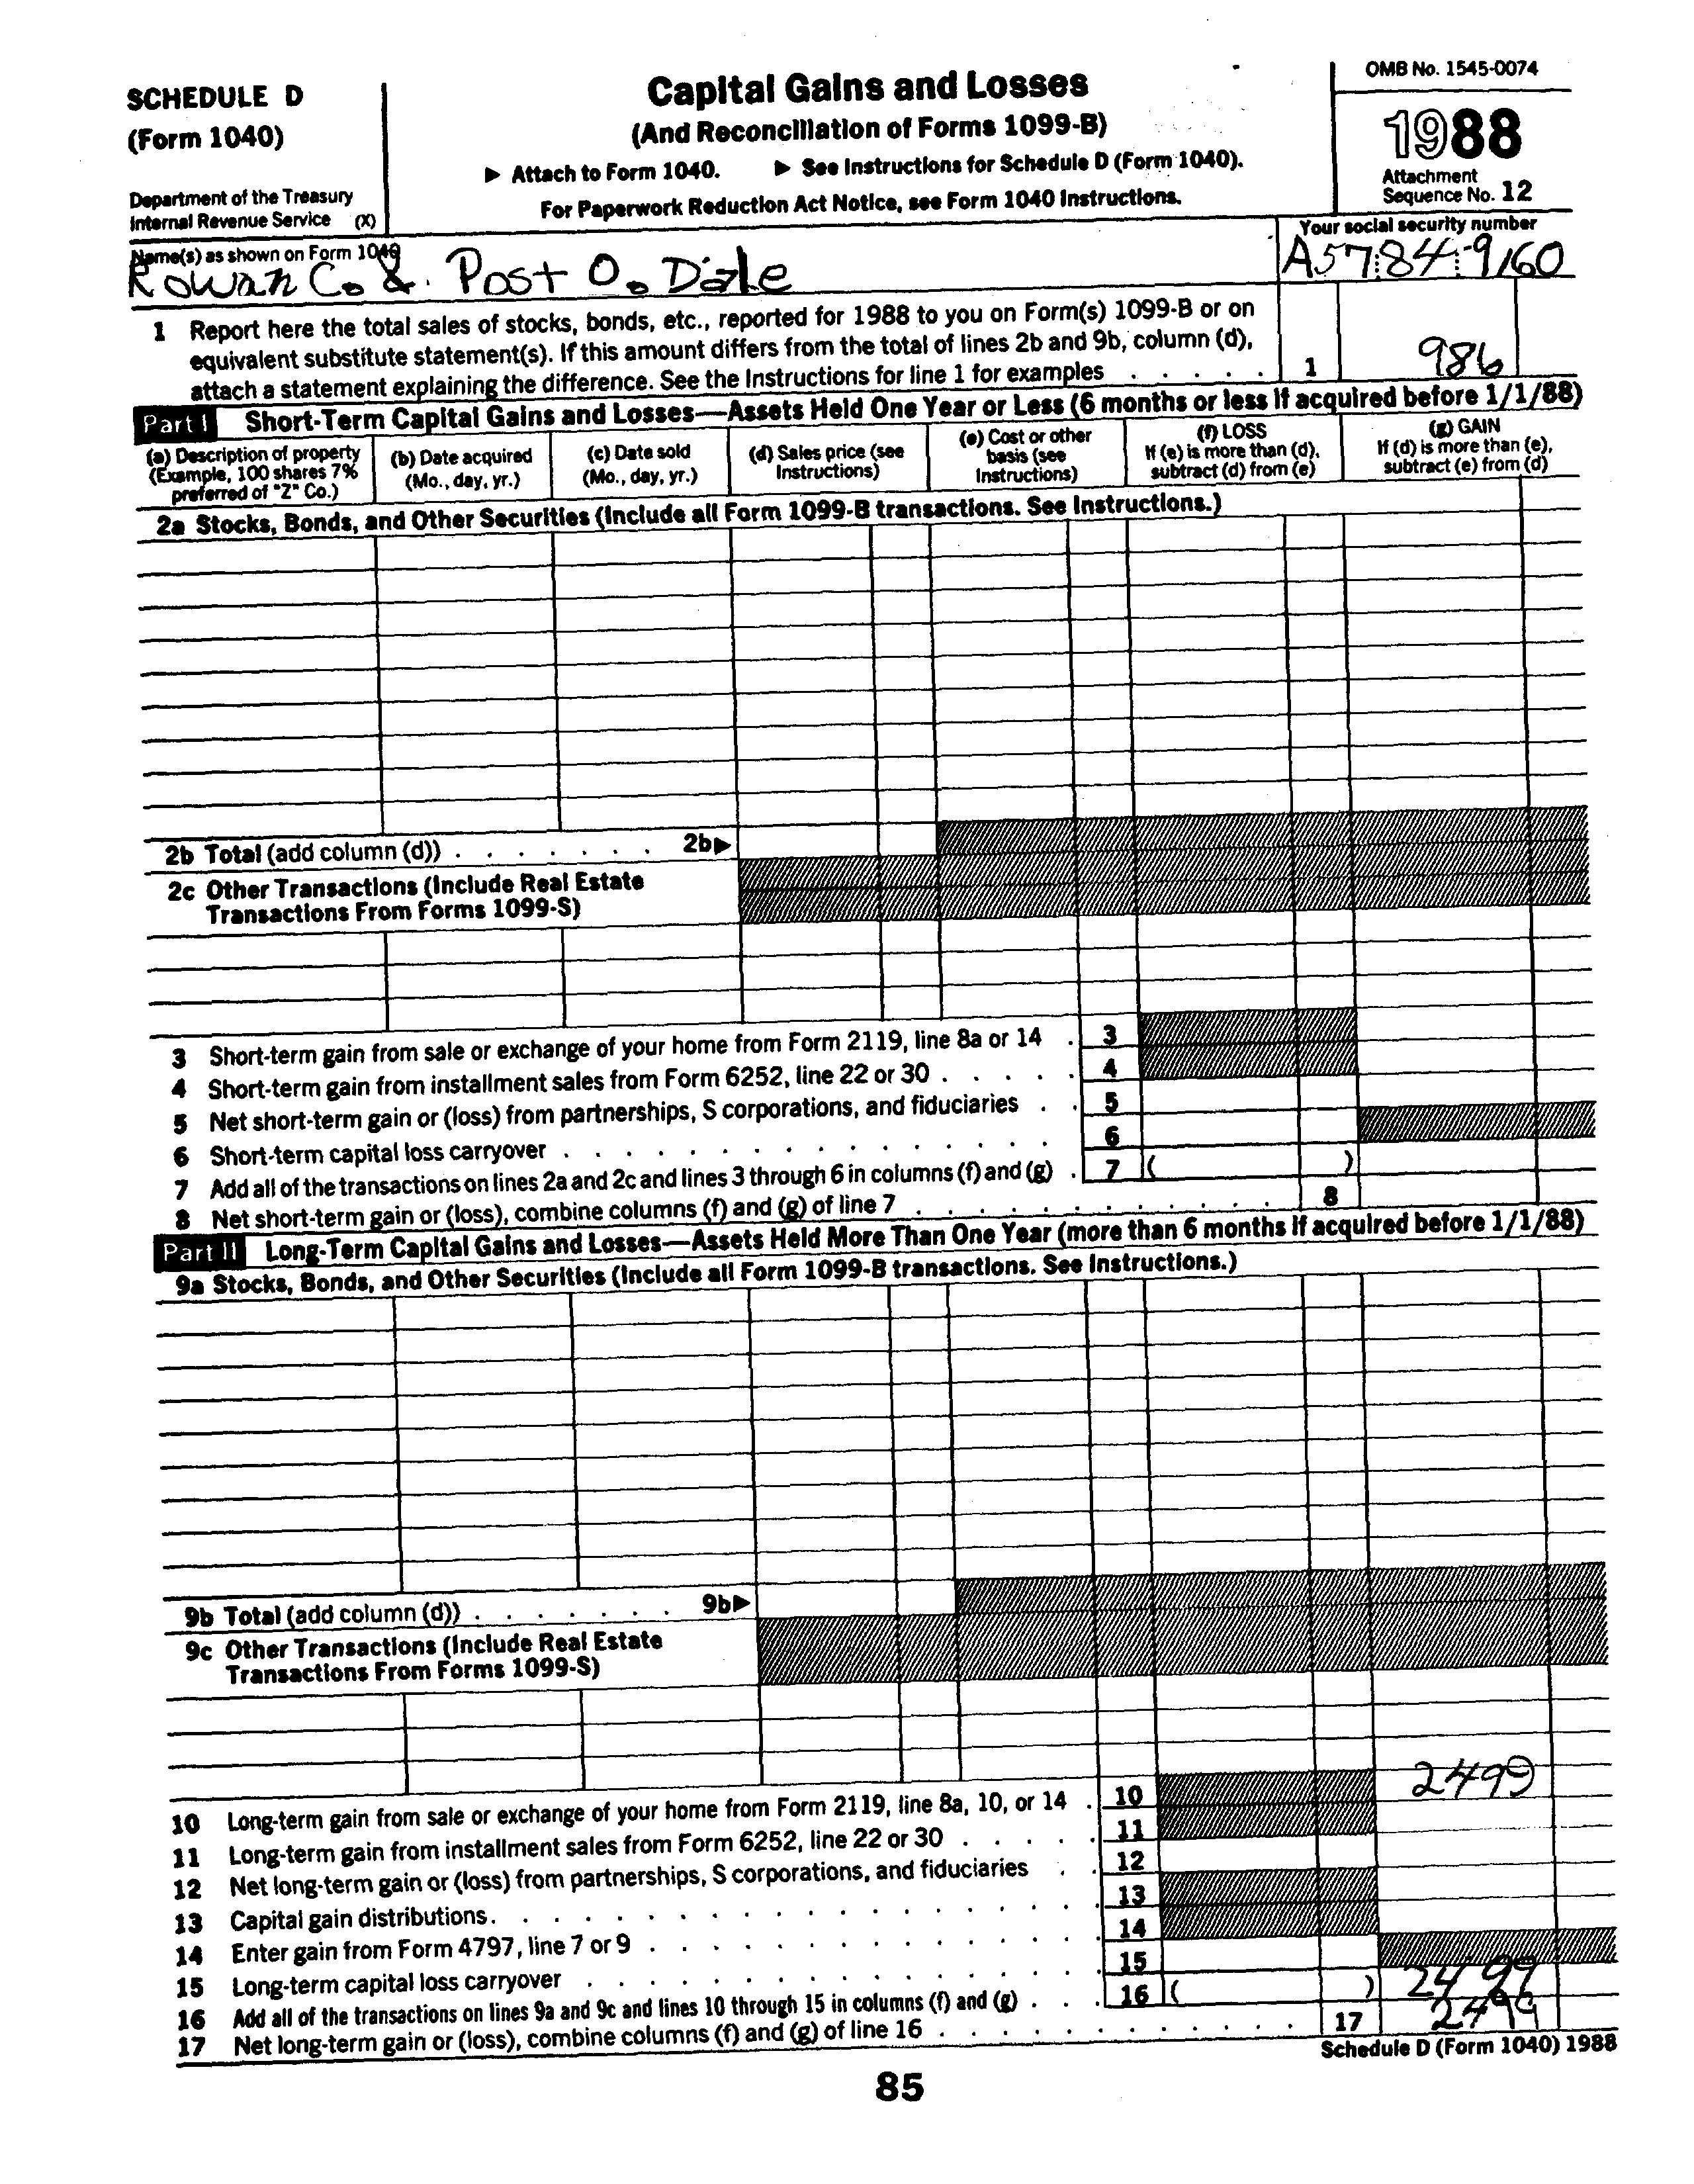 SCHEDULE D
(Form 1040)
Department of the Treasury
Internal Revenue Service (X)
Capital Gains and Losses
(And Reconciliation of Forms 1099-B)
▶ Attach to Form 1040. ▶ See Instructions for Schedule D (Form 1040).
For Paperwork Reduction Act Notice, see Form 1040 Instructions.
OMB No. 1545-0074
1988
Attachment
Sequence No. 12
Name(s) as shown on Form 1040
Rowan Co & Post O. Dale
Your social security number
A57:84:9160
1 Report here the total sales of stocks, bonds, etc., reported for 1988 to you on Form(s) 1099-B or on
equivalent substitute statement(s). If this amount differs from the total of lines 2b and 9b, column (d),
attach a statement explaining the difference. See the Instructions for line 1 for examples . . . . . 1 986
Part I Short-Term Capital Gains and Losses—Assets Held One Year or Less (6 months or less if acquired before 1/1/88)
(a) Description of property
(Example, 100 shares 7%
preferred of "Z" Co.)
(b) Date acquired
(Mo., day, yr.)
(c) Date sold
(Mo., day, yr.)
(d) Sales price (see
Instructions)
(e) Cost or other
basis (see
Instructions)
(f) LOSS
If (e) is more than (d),
subtract (d) from (e)
(g) GAIN
If (d) is more than (e),
subtract (e) from (d)
2a Stocks, Bonds, and Other Securities (Include all Form 1099-B transactions. See Instructions.)
2b Total (add column (d)) . . . . . . . 2b▶
2c Other Transactions (Include Real Estate
Transactions From Forms 1099-S)
3 Short-term gain from sale or exchange of your home from Form 2119, line 8a or 14 . 3
4 Short-term gain from installment sales from Form 6252, line 22 or 30 . . . . . 4
5 Net short-term gain or (loss) from partnerships, S corporations, and fiduciaries . . 5
6 Short-term capital loss carryover . . . . . . . . . . . . . 6
7 Add all of the transactions on lines 2a and 2c and lines 3 through 6 in columns (f) and (g) . 7 ( )
8 Net short-term gain or (loss), combine columns (f) and (g) of line 7 . . . . . . . . . . . . 8
Part II Long-Term Capital Gains and Losses—Assets Held More Than One Year (more than 6 months if acquired before 1/1/88)
9a Stocks, Bonds, and Other Securities (Include all Form 1099-B transactions. See Instructions.)
9b Total (add column (d)) . . . . . . . 9b▶
9c Other Transactions (Include Real Estate
Transactions From Forms 1099-S)
10 Long-term gain from sale or exchange of your home from Form 2119, line 8a, 10, or 14 . 10 2499
11 Long-term gain from installment sales from Form 6252, line 22 or 30 . . . . . 11
12 Net long-term gain or (loss) from partnerships, S corporations, and fiduciaries . . 12
13 Capital gain distributions. . . . . . . . . . . . . . . . . . . 13
14 Enter gain from Form 4797, line 7 or 9 . . . . . . . . . . . . . . 14
15 Long-term capital loss carryover . . . . . . . . . . . . . . . . 15
16 Add all of the transactions on lines 9a and 9c and lines 10 through 15 in columns (f) and (g) . . . 16 ( ) 2499
17 Net long-term gain or (loss), combine columns (f) and (g) of line 16 . . . . . . . . . . . . 17 2499
Schedule D (Form 1040) 1988
85